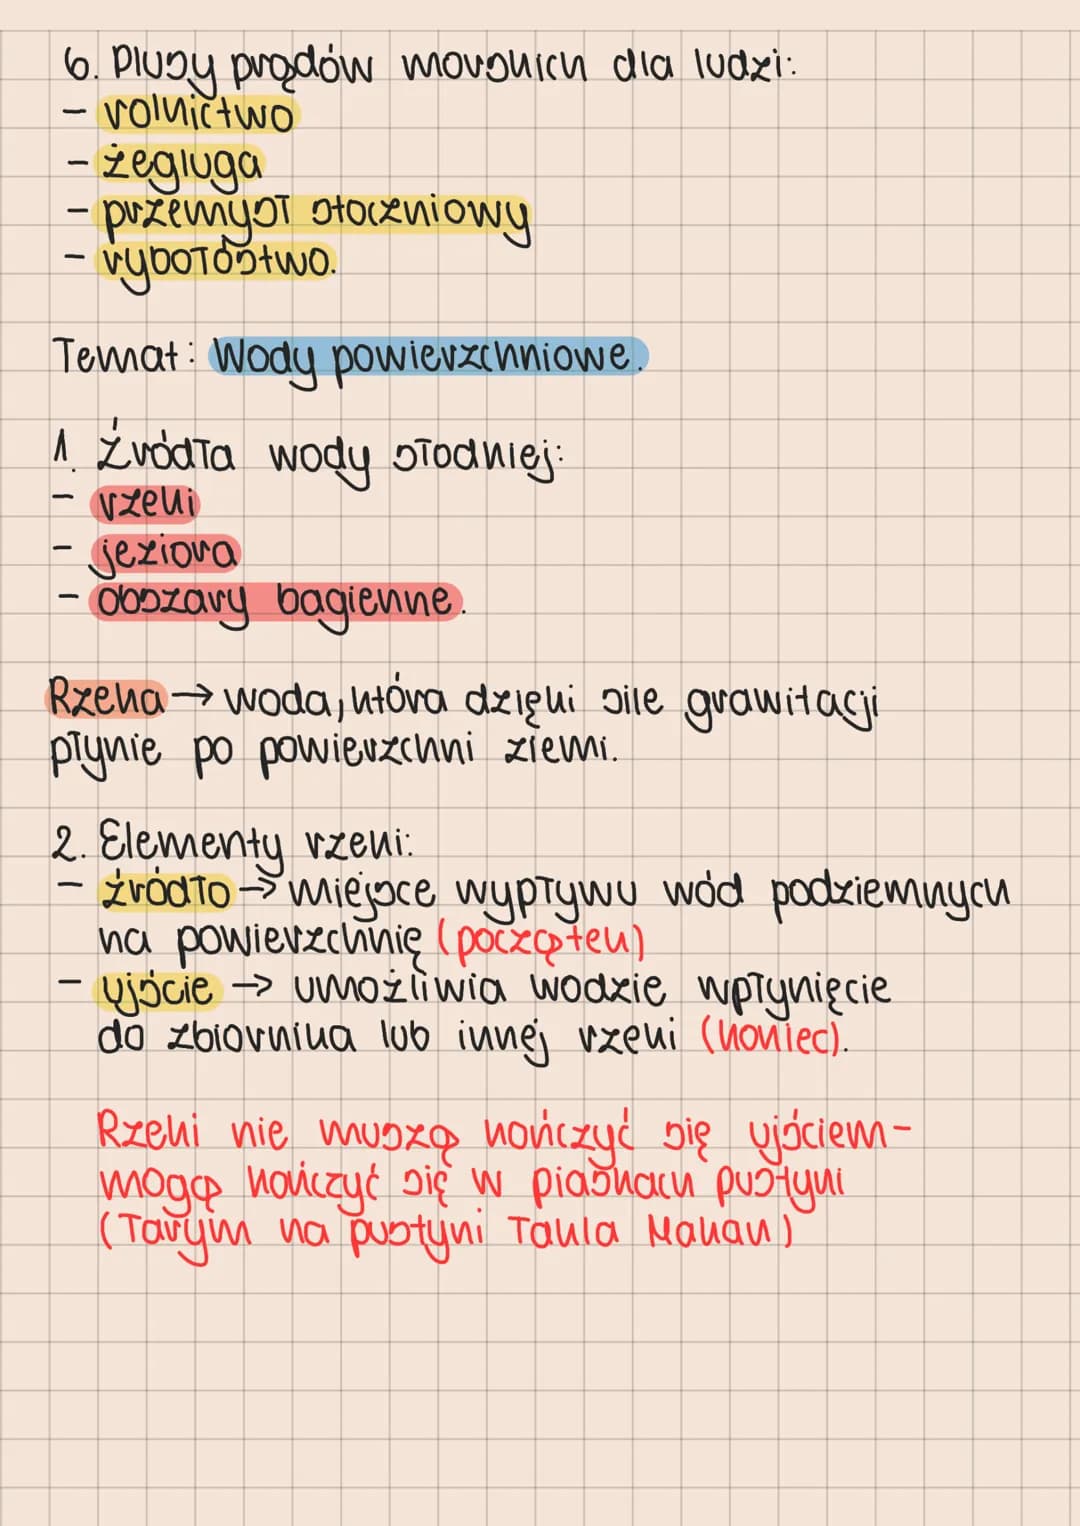 6. Plusy prądów morskich dla ludzi:
- rolnictwo
- żegluga
- przemysł stoczniowy
- rybołóstwo.
Temat: Wody powierzchniowe.
1. Źródła wody słodniej:
- rzeki
- jeziora
- obszary bagienne.
Rzeka → woda, która dzięki sile grawitacji
płynie po powierzchni ziemi.
2. Elementy rzeki:
- źródło → miejsce wypływu wód podziemnych
na powierzchnię (początek)
- ujście → umożliwia wodzie wpłynięcie
do zbiornika lub innej rzeki (koniec).
Rzeki nie muszą kończyć się ujściem-
mogą kończyć się w piaskach pustyni
(Tarym na pustyni Takla Makan)